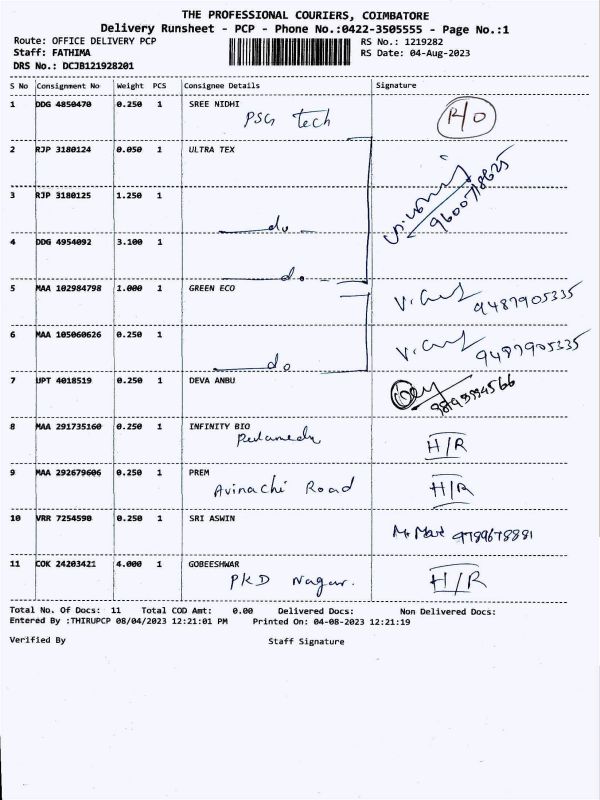 THE PROFESSIONAL COURIERS, COIMBATORE
Delivery Runsheet - PCP - Phone No.:0422-3505555 - Page No.:1
Route: OFFICE DELIVERY PCP RS No.: 1219282
Staff: FATHIMA RS Date: 04-Aug-2023
DRS No.: DCJB121928201
S No Consignment No Weight PCS Consignee Details Signature
1 DDG 4850470 0.250 1 SREE NIDHI
PSG tech R/O
2 RJP 3180124 0.050 1 ULTRA TEX
9600718625
3 RJP 3180125 1.250 1
do
4 DDG 4954092 3.100 1
do
5 MAA 102984798 1.000 1 GREEN ECO
9487905335
6 MAA 105060626 0.250 1
do 9487905335
7 UPT 4018519 0.250 1 DEVA ANBU
8 MAA 291735160 0.250 1 INFINITY BIO
H/R
9 MAA 292679606 0.250 1 PREM
Avinachi Road H/R
10 VRR 7254590 0.250 1 SRI ASWIN
9789678881
11 COK 24203421 4.000 1 GOBEESHWAR
PKD Nagar. H/R
Total No. Of Docs: 11 Total COD Amt: 0.00 Delivered Docs: Non Delivered Docs:
Entered By :THIRUPCP 08/04/2023 12:21:01 PM Printed On: 04-08-2023 12:21:19
Verified By Staff Signature